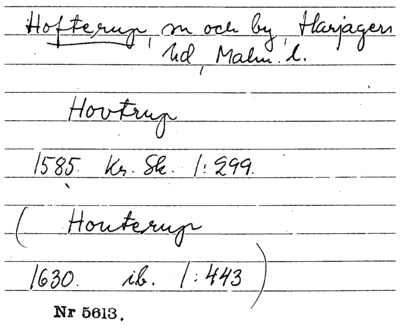 Hofterup, sn och by, Harjagers
hd, Malm. l.
Hovtrup
1585. Kr. Sk. 1:299.
(Houterup
1630. ib. 1:443)
Nr 5613.